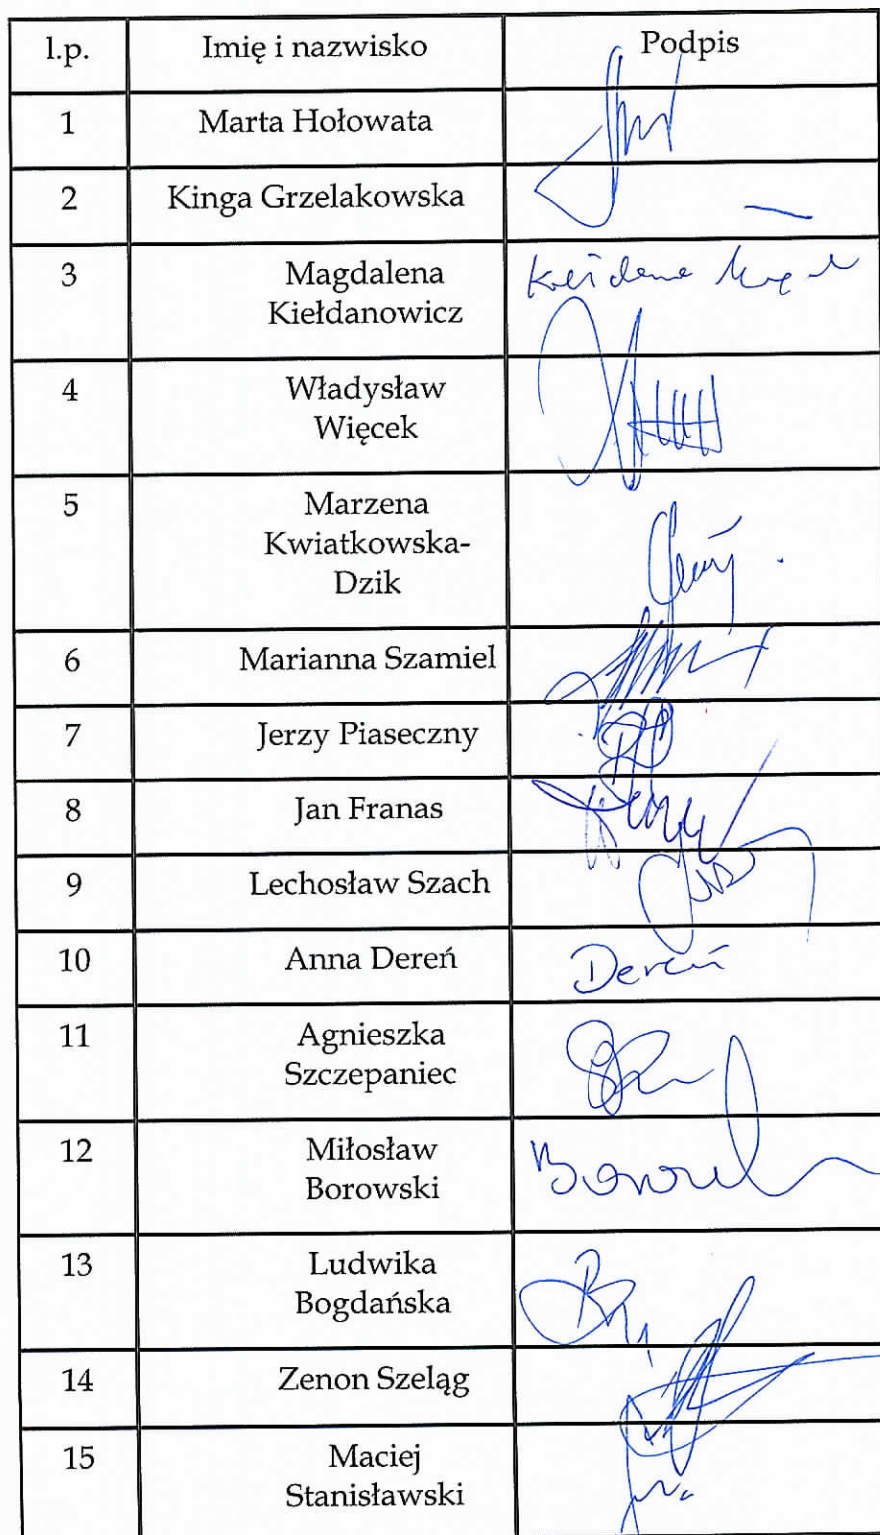 l.p. Imię i nazwisko Podpis
1 Marta Hołowata
2 Kinga Grzelakowska —
3 Magdalena
Kiełdanowicz
4 Władysław
Więcek
5 Marzena
Kwiatkowska-
Dzik
6 Marianna Szamiel
7 Jerzy Piaseczny
8 Jan Franas
9 Lechosław Szach
10 Anna Dereń Dereń
11 Agnieszka
Szczepaniec
12 Miłosław
Borowski
13 Ludwika
Bogdańska
14 Zenon Szeląg
15 Maciej
Stanisławski